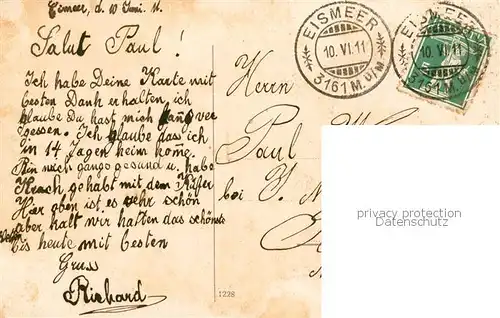 Eismeer, d. 10 Juni. 11.
Salut Paul!
Ich habe Deine Karte mit
besten Dank erhalten, ich
glaube Du hast mich ganz ver
gessen. Ich glaube das ich
in 14 Tagen heim kome.
Bin noch ganz gesund u. habe
Krach gehabt mit dem
Hier oben ist es sehr schön
aber halt wir hatten das schönste
bis heute mit besten
Gruss
Richard
EISMEER
10. VI. 11
3161 M. Ü/M
EISMEER
10. VI. 11
3161 M. Ü/M
Herrn
Paul
bei
1228
privacy protection
Datenschutz